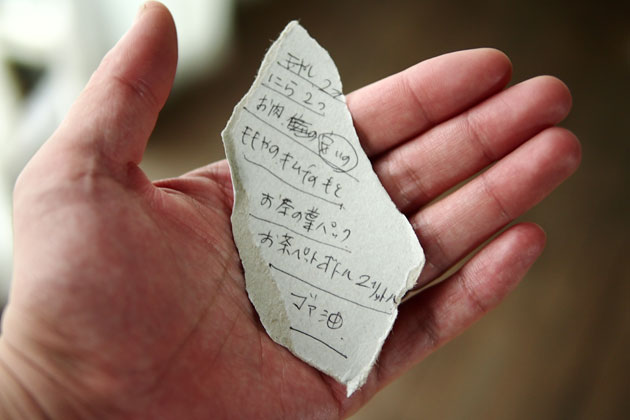 モヤし
にら 2つ
お肉
モモヤのキムチのもと
お茶の葉パック
お茶ペットボトル 2リットル
ゴマ油